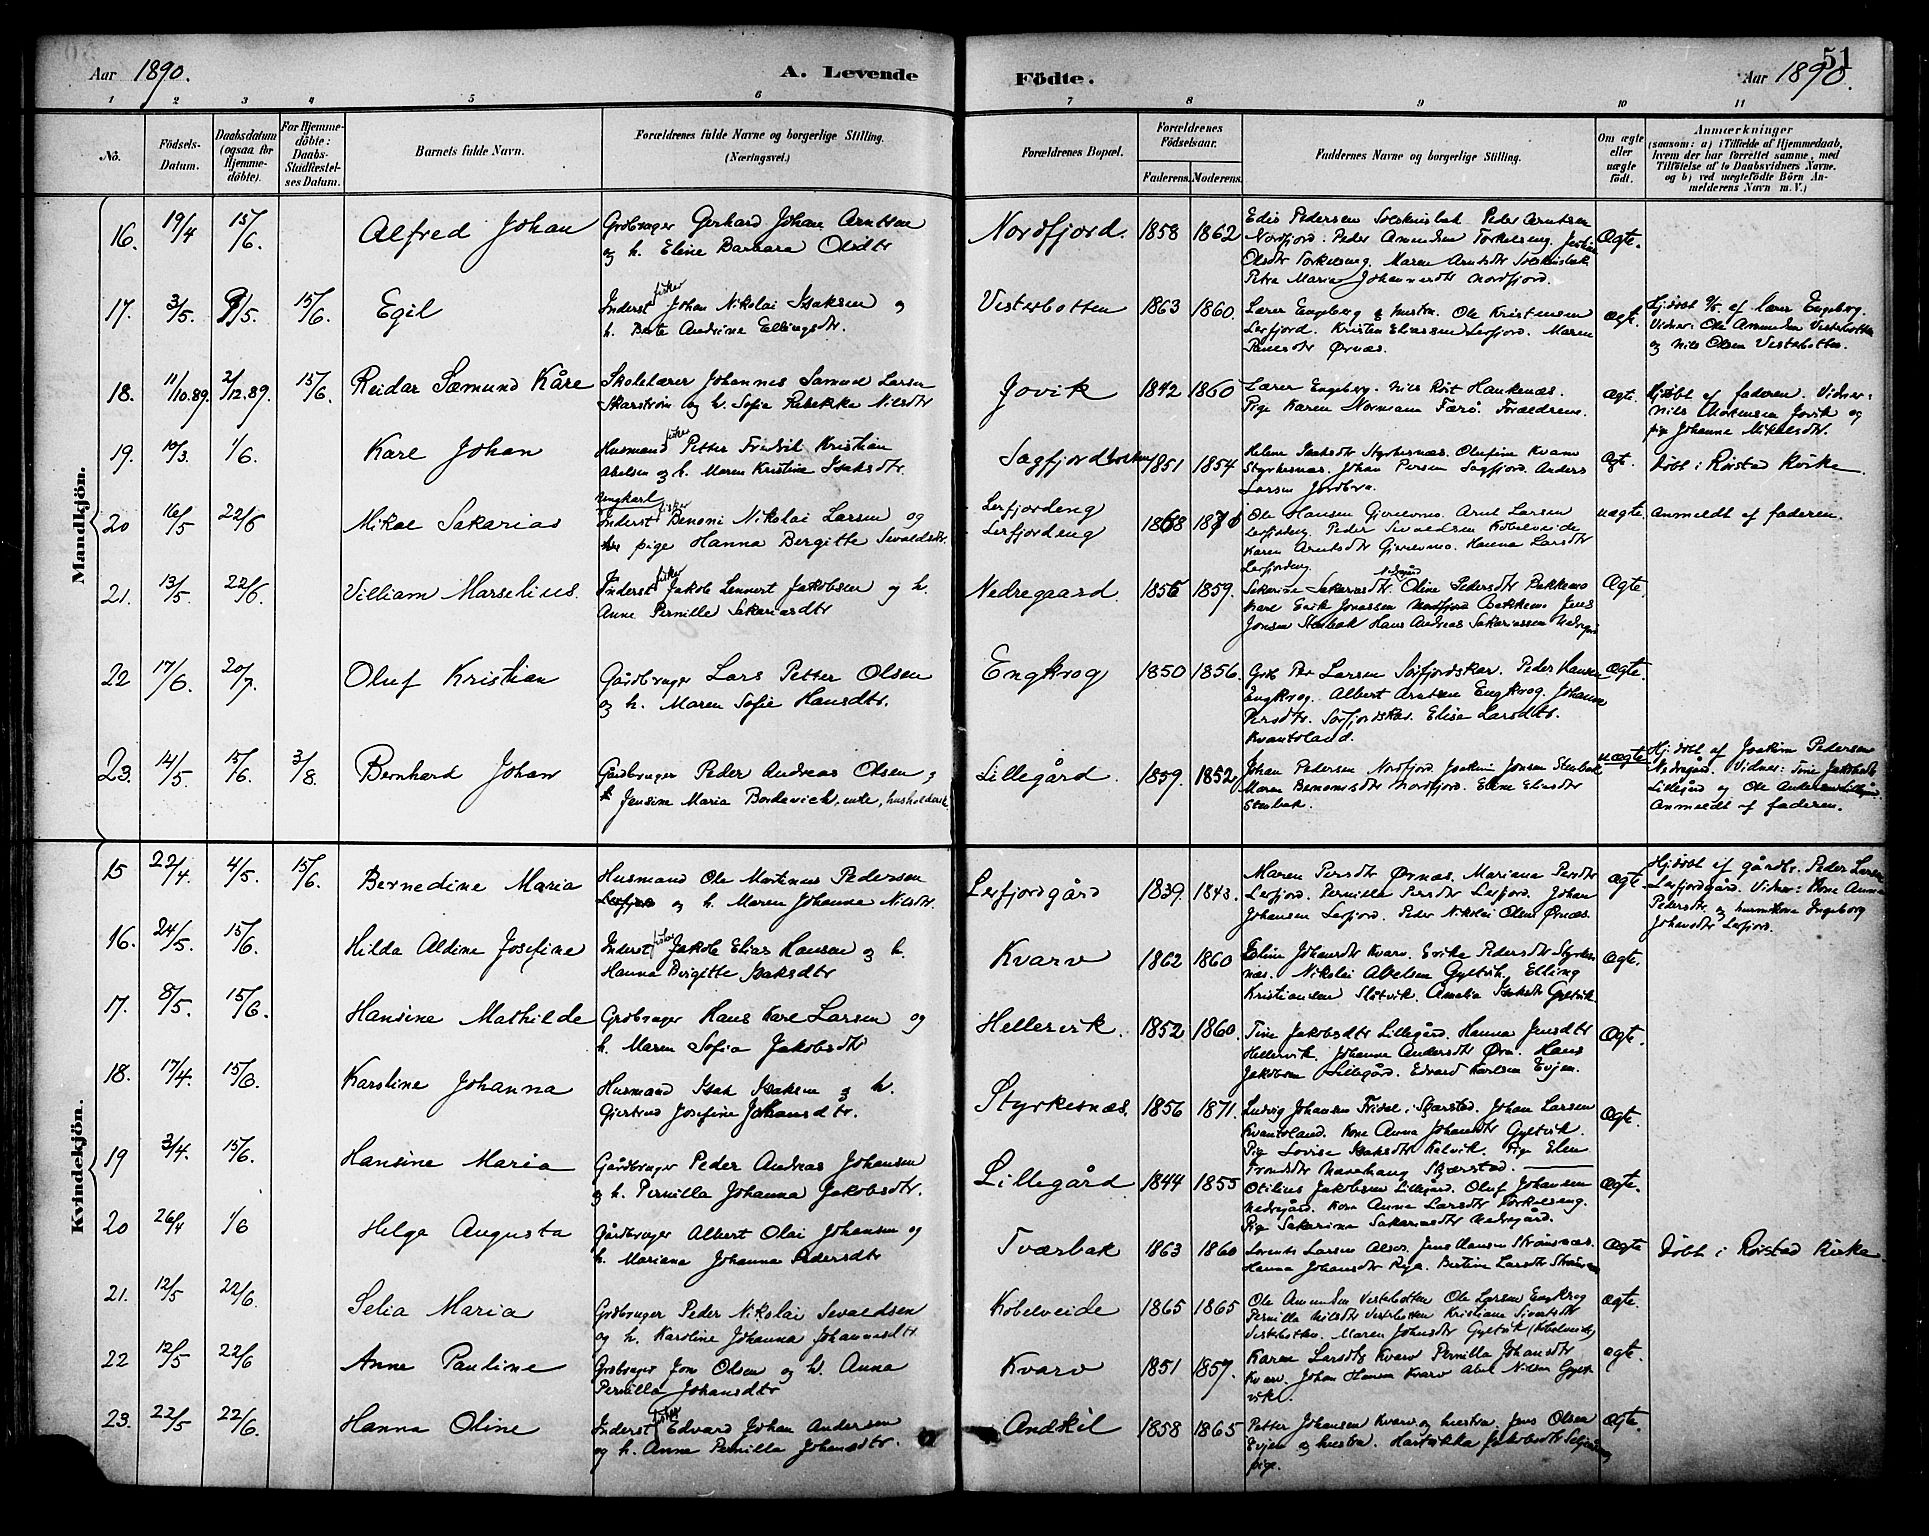 Aar 1890.
A. Levende
Födte.
51
Aar 1890.
1 2 3 4 5 6 7 8 9 10 11
No.
Födsels-
Datum.
Daabsdatum
(ogsaa for
Hjemme-
döbte).
For Hjemme-
döbte:
Daabs-
Stadfæstel-
ses Datum.
Barnets fulde Navn.
Forældrenes fulde Navne og borgerlige Stilling.
(Næringsvei.)
Forældrenes Bopæl.
Forældrenes
Födselsaar.
Faderens. Moderens.
Faddernes Navne og borgerlige Stilling.
Om ægte
eller
uægte
födt.
Anmærkninger
(saasom: a) i Tilfælde af Hjemmedaab,
hvem der har forrettet samme, med
Tilföielse af to Daabsvidners Navne.
og b) ved uægtefödte Börn An-
melderens Navn m. V.)
Mandkjön.
16. 19/4 15/6. Alfred Johan
Grdbruger Gerhard Johan Arntsen
og h. Eline Barbara Olsdtr
Nordfjord. 1858 1862
Peder Arntsen
Nordfjord. Peder Amundsen Torkelseng.
Olsdtr Torkelseng. Maren Arntsdtr
Petra Maria Johannesdtr Nordfjord.
Ægte.
17. 3/5. 9/5. 15/6. Egil
Inderst fisker Johan Nikolai Isaksen og
h. Berte Andrine Ellingsdtr.
Vesterbotten 1863 1860.
Lærer Engeberg og hustru. Ole Kristensen
Lerfjord. Kristen Eliassen Lerfjord. Maren
Ørnæs.
ægt.
Hjdøbt 9/5. af lærer Engeberg.
Vidner: Ole Amundsen Vesterbotten
og Nils Olsen Vesterbotten.
18. 11/10.89. 2/12.89. 15/6. Reidar Sæmund Kåre
Skolelærer Johannes Samuel Larsen
Skarstrøm og h. Sofie Rebekka Nilsdtr
Jovik 1842 1860
Lærer Engeberg. Nils Røst Haukenæs.
Pige Karen Normann Færø. Forældrene.
Ægt.
Hjdøbt af faderen. Vidner:
Nils Mortensen Jovik og
pige Johanna Mikalsdtr.
19. 10/3. 1/6. Karl Johan
Husmand fisker Petter Fredrik Kristian
Abelsen og h. Maren Kristine Isaksdtr.
Sagfjordbotten 1851 1854
Helene Isaksdtr Styrkesnæs. Olufine Kvarv
Styrkesnæs. Johan Persen Sagfjord. Anders
Larsen Jordbro.
Ægt.
Døbt i Rørstad Kirke.
20 16/5 22/6 Mikal Sakarias
ungkarl
Inderst fisker Benoni Nikolai Larsen og
pige Hanna Bergitte Sevaldsdtr.
Lerfjordeng
Lerfjordeng
1868 1870
Ole Hansen Gjerelvmo. Arnt Larsen
Lerfjordeng. Peder Sevaldsen Kobelveide
Karen Arntsdtr Gjerelvmo. Hanna Larsdtr
Lerfjordeng.
uægte.
Anmeldt af faderen.
21. 13/5. 22/6. Villiam Marselius.
Inderst fisker Jakob Lennert Jakobsen og h.
Anne Pernille Sakariasdtr
Nedregaard 1856 1859.
Sakarine Sakariasdtr. Nedregård Oline Pedersdtr Bakkemo
Karl Erik Jonassen Nordfjord Bakkemo Jens
Jonsen Stenbak Hans Andreas Sakariassen Nedregård
Ægte.
22 17/6. 20/7. Oluf Kristian
Gårdbruger Lars Petter Olsen
og h. Maren Sofie Hansdtr.
Engkrog 1850 1856.
Grb Per Larsen Sørfjordskar. Peder Hansen
Engkrog. Albert Arntsen Engkrog. Johanna
Persdtr. Sørfjordskar. Elise Larsdtr.
Kvantoland.
ægte.
23. 14/5. 15/6. 3/8. Bernhard Johan
Gårdbruger Peder Andreas Olsen og
Jensine Maria Bordevich, enke, husholderske
Lillegård. 1859. 1852.
Johan Pedersen Nordfjord. Joakim Jonsen Stenbak
Maren Benonisdtr Nordfjord. Elene Eliasdtr
Stenbak.
uægte
Hj.døbt af Joakim Pedersen
Nedregård. Vidner: Trine Jakobsdtr
Lillegård og Ole Andersen Lillegård.
Anmeldt af faderen.
Kvindekjön.
15 22/4. 4/5. 15/6. Bernedine Maria
Husmand Ole Martinus Pedersen
og h. Maren Johanna Nilsdtr.
Lerfjordgård 1839. 1843.
Maren Persdtr Ørnæs. Mariana Persdtr
Lerfjord. Pernilla Persdtr Lerfjord. Johan
Johansen Lerfjord. Peder Nikolai Olsen Ørnæs.
ægt.
Hjdøbt af gårdbr. Peder Larsen
Lerfjordgård. Vidner: Kone Anna
Pedersdtr og husmkone Ingeborg
Johansdtr Lerfjord.
16. 24/5. 15/6. Hilda Aldine Josefine
Inderst fisker Jakob Elias Hansen og h.
Hanna Birgitte Isaksdtr
Kvarv 1862 1860.
Eline Johansdtr Kvarv. Erika Pedersdtr Styrkes-
næs. Nikolai Abelsen Gyltvik. Elling
Kristiansen Slotvik. Amelia Isaksdtr Gyltvik
Ægte.
17. 8/5. 15/6. Hansine Mathilde
Grdbruger Hans Karl Larsen og
h. Maren Sofia Jakobsdtr
Hellervik. 1852 1860.
Trine Jakobsdtr Lillegård. Hanna Jensdtr
Hellervik. Johanna Andersdtr Øra. Hans
Jakobsen Lillegård. Edvard Karlsen Evjen.
Ægte.
18. 17/4. 15/6. Karoline Johanna
Husmand Isak Isaksen og h.
Gjertrud Josefine Johansdtr.
Styrkesnæs. 1856 1871.
Ludvig Johansen Tridal i Skjerstad. Johan Larsen
Kvantoland. Kone Anna Johansdtr Gyltvik.
Pige Lovise Isaksdtr Kalvik. Pige Elen
Trondsdtr Skjærstad.
Ægte.
19 3/4. 15/6. Hansine Maria
Gårdbruger Peder Andreas Johansen
og h. Pernilla Johanna Jakobsdtr.
Lillegård 1844 1855
Otilius Jakobsen Lillegård. Oluf Johansen
Nedregård. Kone Anna Larsdtr Torkelseng.
Pige Sakarina Sakariasdtr Nedregård.
Ægte.
20 26/4 1/6 Helga Augusta
Gårdbruger Albert Olai Johansen og
h. Mariana Johanna Pedersdtr
Tværbak 1863 1860
Lorents Larsen Alsos. Jens Hansen Strømsnæs.
Hanna Johansdtr Røja. Bertine Larsdtr
Ægte
Døbt i Rørstad Kirke
21. 12/5 22/6. Selia Maria
Grdbruger Peder Nikolai Sevaldsen
og h. Karoline Johanna Johannesdtr.
Kobelveide 1865 1865
Ole Amundsen Vesterbotten Ole Larsen Engkrog
Pernilla Nilsdtr Vesterbotten Kristiane Sivertsdtr
Vesterbotten. Maren Johnsdtr Gyltvik (Kobelveide)
Ægte.
22 12/5 22/6 Anne Pauline
Grdbruger Jon Olsen og h. Anna
Pernilla Johansdtr
Kvarv 1851 1857.
Karen Larsdtr Kvarv Pernilla Johansdtr
Kvarv. Johan Hansen Kvarv Abel Nilsen Gylt-
vik.
ægte.
23. 22/5 22/6. Hanna Oline
Inderst fisker Edvard Johan Andersen
og h. Anna Pernilla Johansdtr.
Andskil 1858 1865
Petter Johansen Kvarv og hustru. Jens Olsen
Evjen og hustru. Hartvikka Jakobsdtr
pige.
Ægte.